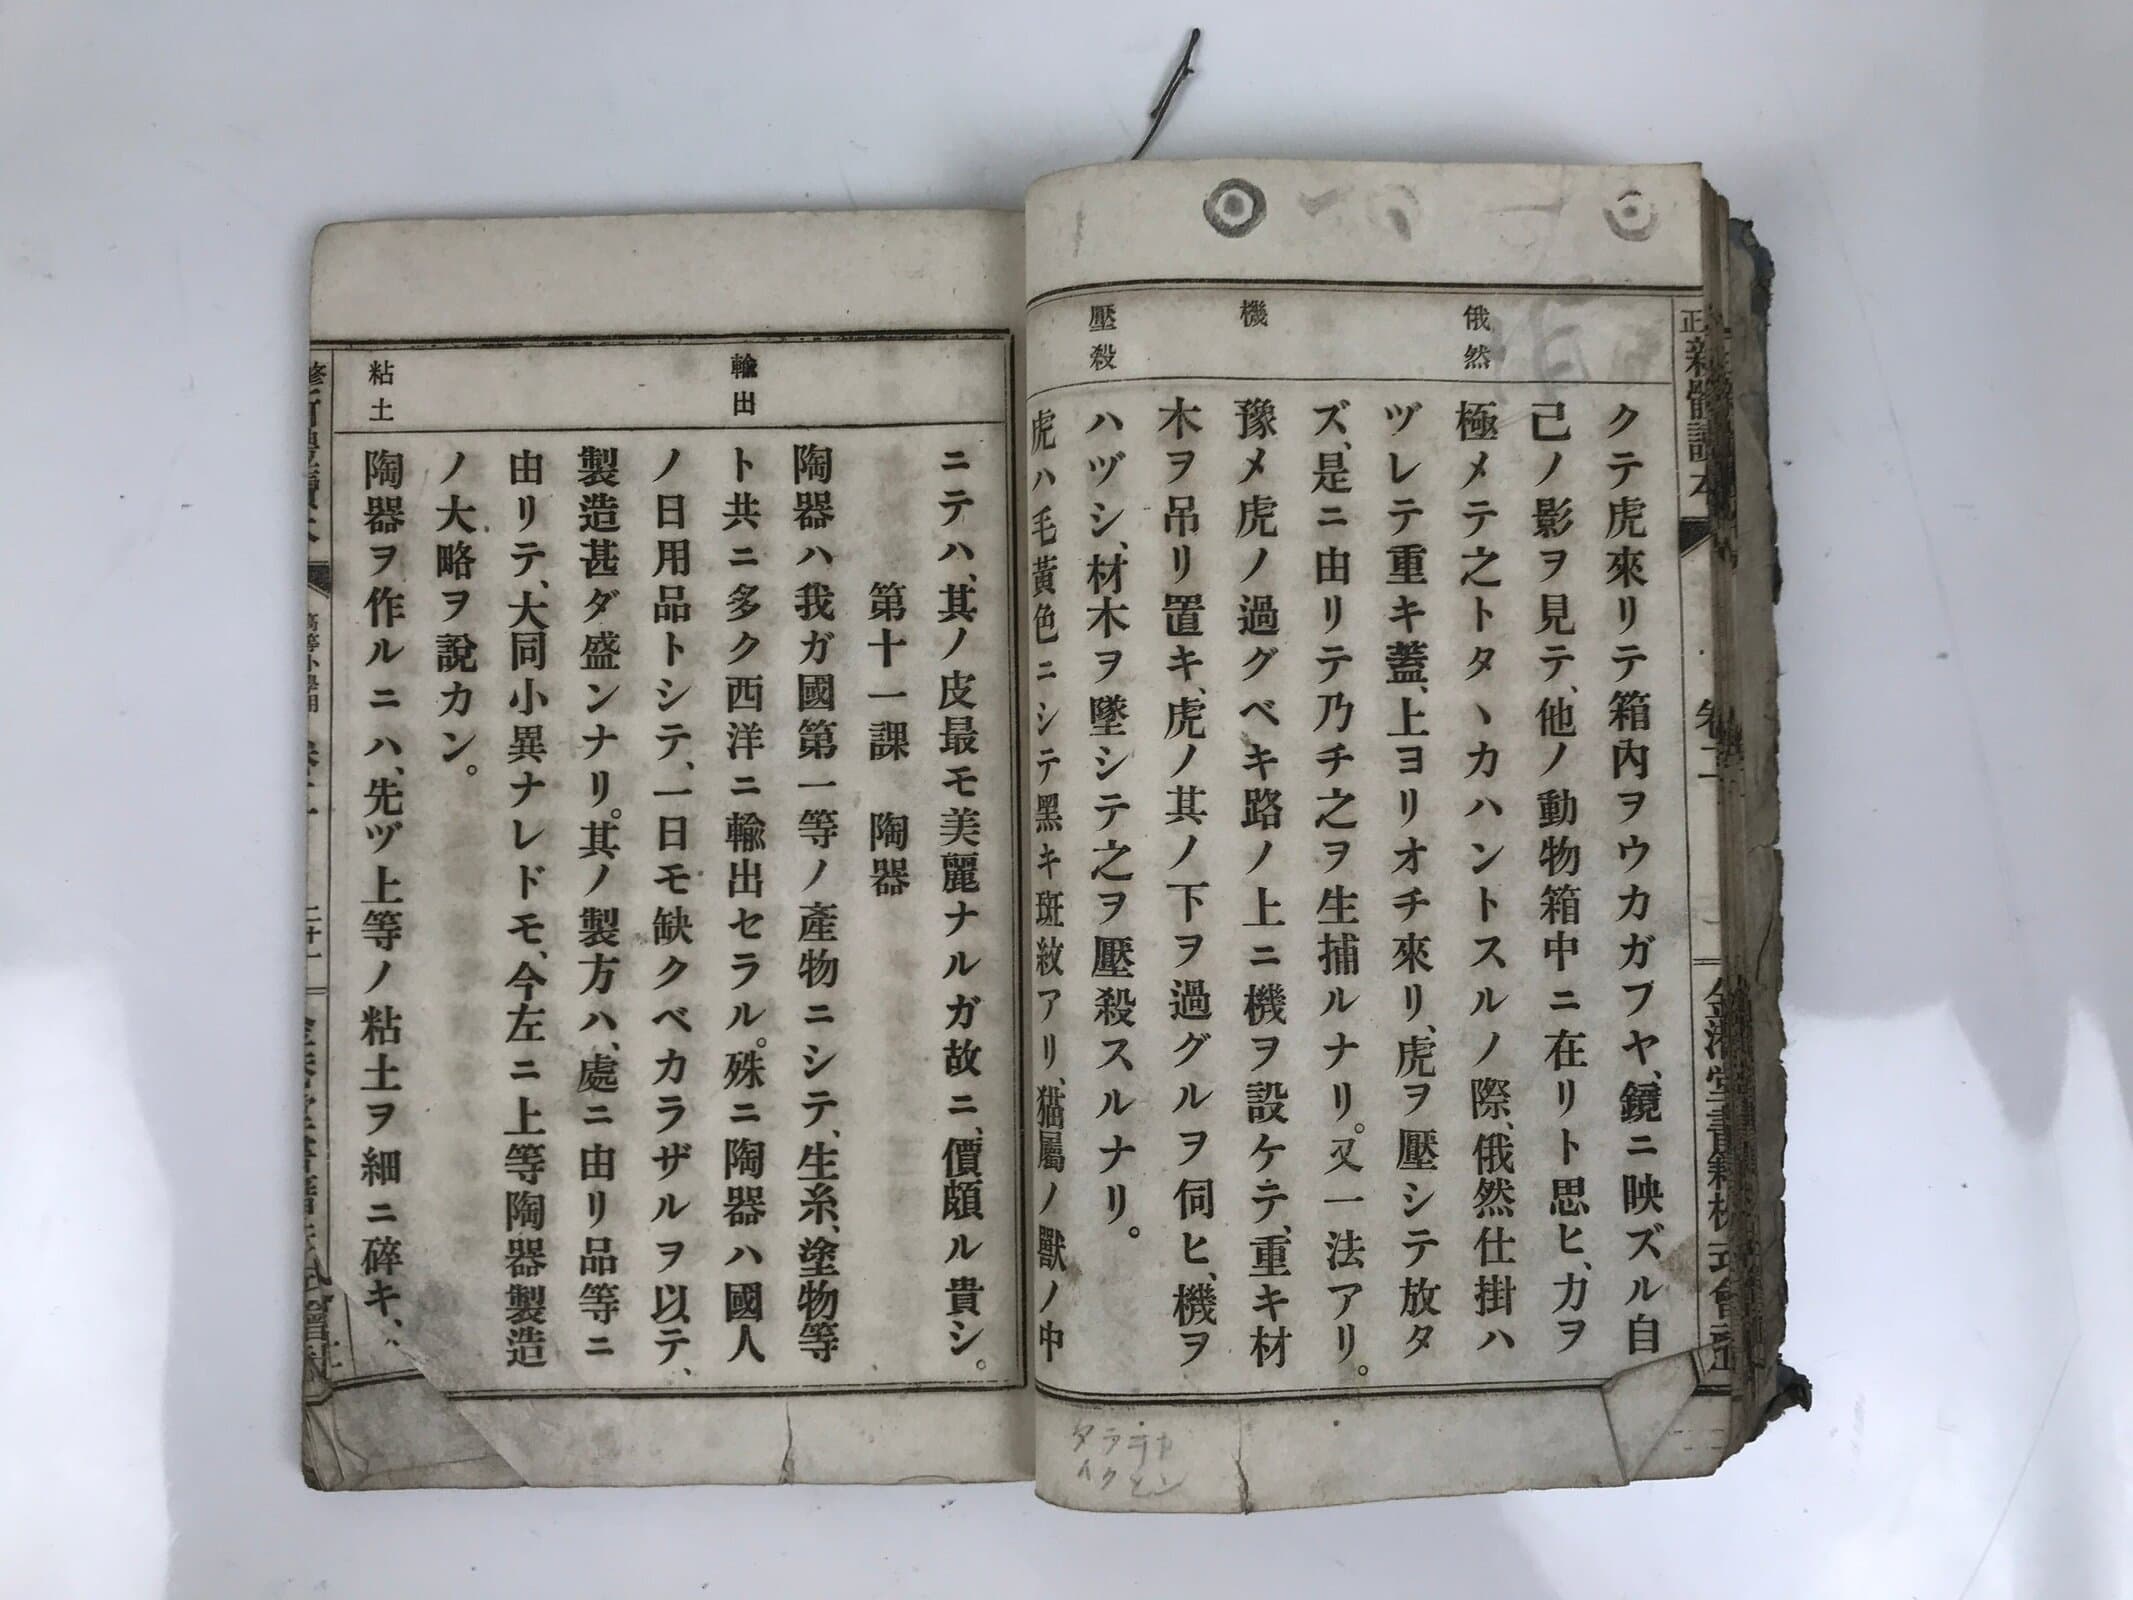 俄然
機
壓殺
クテ虎來リテ箱內ヲウカガフヤ、鏡ニ映ズル自
己ノ影ヲ見テ、他ノ動物箱中ニ在リト思ヒ、力ヲ
極メテ之トタヽカハントスルノ際、俄然仕掛ハ
ヅレテ重キ蓋、上ヨリオチ來リ、虎ヲ壓シテ放タ
ズ、是ニ由リテ乃チ之ヲ生捕ルナリ。又一法アリ。
豫メ虎ノ過グベキ路ノ上ニ機ヲ設ケテ、重キ材
木ヲ吊リ置キ、虎ノ其ノ下ヲ過グルヲ伺ヒ、機ヲ
ハヅシ、材木ヲ墜シテ之ヲ壓殺スルナリ。
虎ハ毛黃色ニシテ黑キ斑紋アリ、猫屬ノ獸ノ中
輸出
粘土
ニテハ、其ノ皮最モ美麗ナルガ故ニ、價頗ル貴シ。
第十一課 陶器
陶器ハ我ガ國第一等ノ產物ニシテ、生糸、塗物等
ト共ニ多ク西洋ニ輸出セラル。殊ニ陶器ハ國人
ノ日用品トシテ、一日モ缺クベカラザルヲ以テ、
製造甚ダ盛ンナリ。其ノ製方ハ、處ニ由リ品等ニ
由リテ、大同小異ナレドモ、今左ニ上等陶器製造
ノ大略ヲ說カン。
陶器ヲ作ルニハ、先ヅ上等ノ粘土ヲ細ニ碎キ、
正新體讀本 卷二 金港堂書籍株式會社